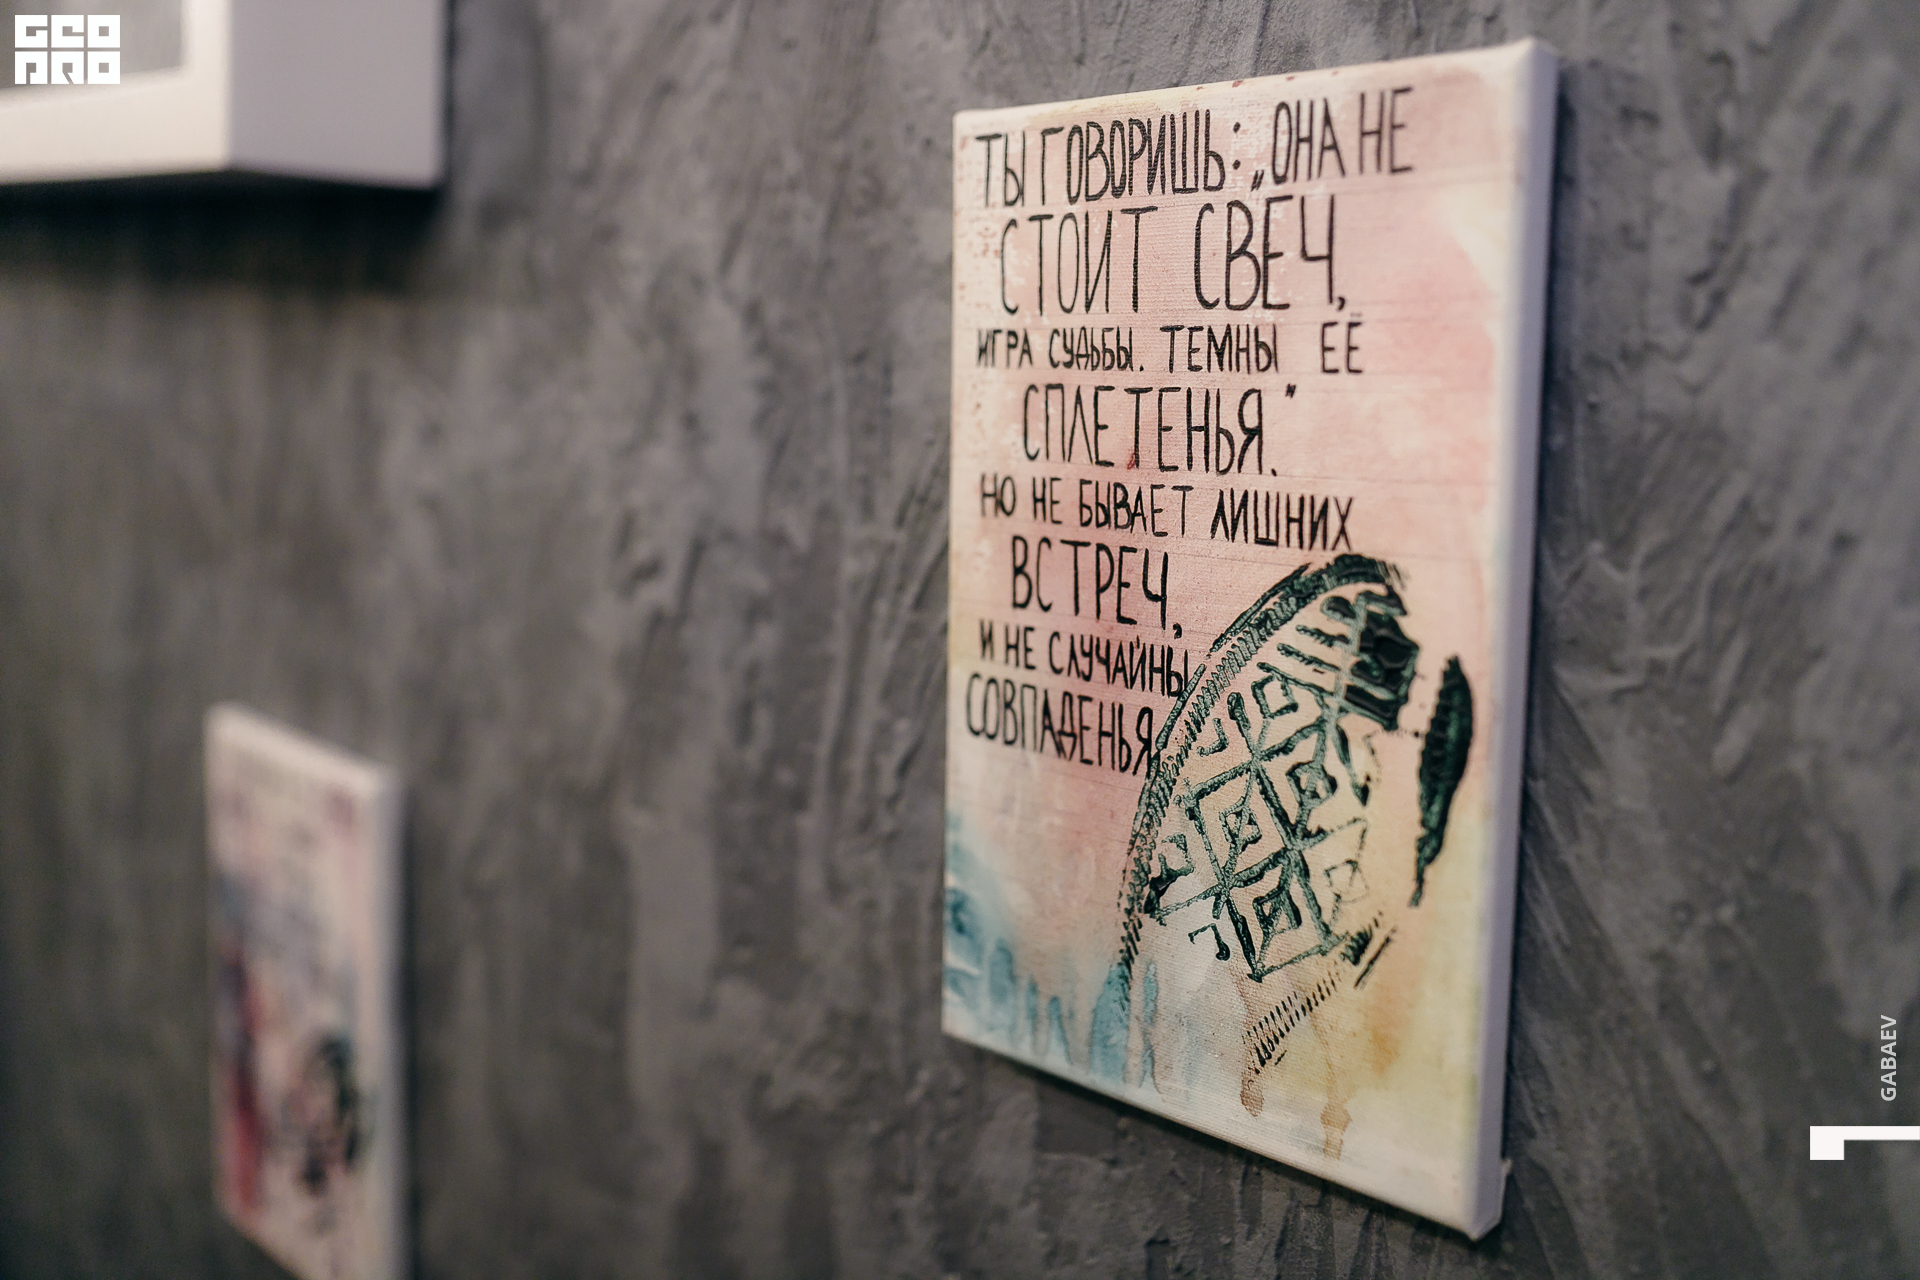 GEO
PRO
ТЫ ГОВОРИШЬ: „ОНА НЕ
СТОИТ СВЕЧ,
ИГРА СУДЬБЫ. ТЕМНЫ ЕЁ
СПЛЕТЕНЬЯ."
НО НЕ БЫВАЕТ ЛИШНИХ
ВСТРЕЧ,
И НЕ СЛУЧАЙНЫ
СОВПАДЕНЬЯ
GABAEV